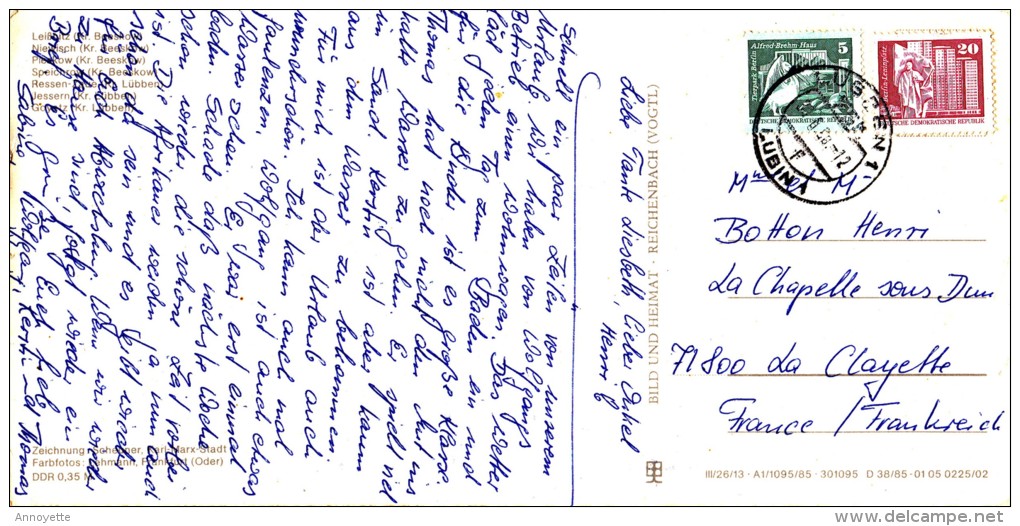 Leißnitz (Kr. Beeskow)
Niewisch (Kr. Beeskow)
Pieskow (Kr. Beeskow)
Speichrow (Kr. Beeskow)
Ressen-Zaue (Kr. Lübben)
Jessern (Kr. Lübben)
Goyatz (Kr. Lübben)
Zeichnung: Scheibner, Karl-Marx-Stadt
Farbfotos: Lehmann, Frankfurt (Oder)
DDR 0,35 M
Liebe Tante Liesbeth, lieber Onkel
Henri
Schnell ein paar Zeilen von unserem
Urlaub. Wir haben von Wolfgangs
Betrieb einen Wohnwagen. Das Wetter
läd jeden Tag zum Baden ein und
für die Kinder ist es große Klasse.
Thomas hat noch nicht den Mut ins
kalte Wasser zu gehen. Er spielt viel
im Sand. Kerstin ist aber kaum
aus dem Wasser zu bekommen.
Für mich ist der Urlaub auch
wunderschön. Ich kann auch mal
faulenzen. Wolfgang ist auch etwas
Wasserscheu. Er war erst einmal
baden. Schade daß nächste Woche
schon wieder die schöne Zeit vorbei
ist. Die Arbeit
sein und es gibt wieder
viel Abwechslung. Wenn wir wieder
zu Hause sind, folgt wieder ein
Brief. Es grüßen Euch lieb
Sabine, Wolfgang, Kerstin und Thomas
BILD UND HEIMAT · REICHENBACH (VOGTL)
Alfred-Brehm-Haus
5
Tierpark Berlin
DEUTSCHE DEMOKRATISCHE REPUBLIK
20
Berlin-Leninplatz
DEUTSCHE DEMOKRATISCHE REPUBLIK
LUBBEN 1
(LUBIN)
Mme et M.
Botton Henri
La Chapelle sous Dun
71800 La Clayette
France / Frankreich
III/26/13 · A1/1095/85 · 301095 D 38/85 · 01 05 0225/02
Annoyette
delcampe.net